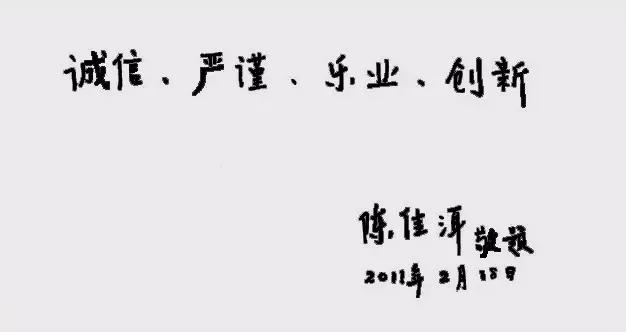 诚信、严谨、乐业、创新
陈佳洱敬题
2011年2月15日